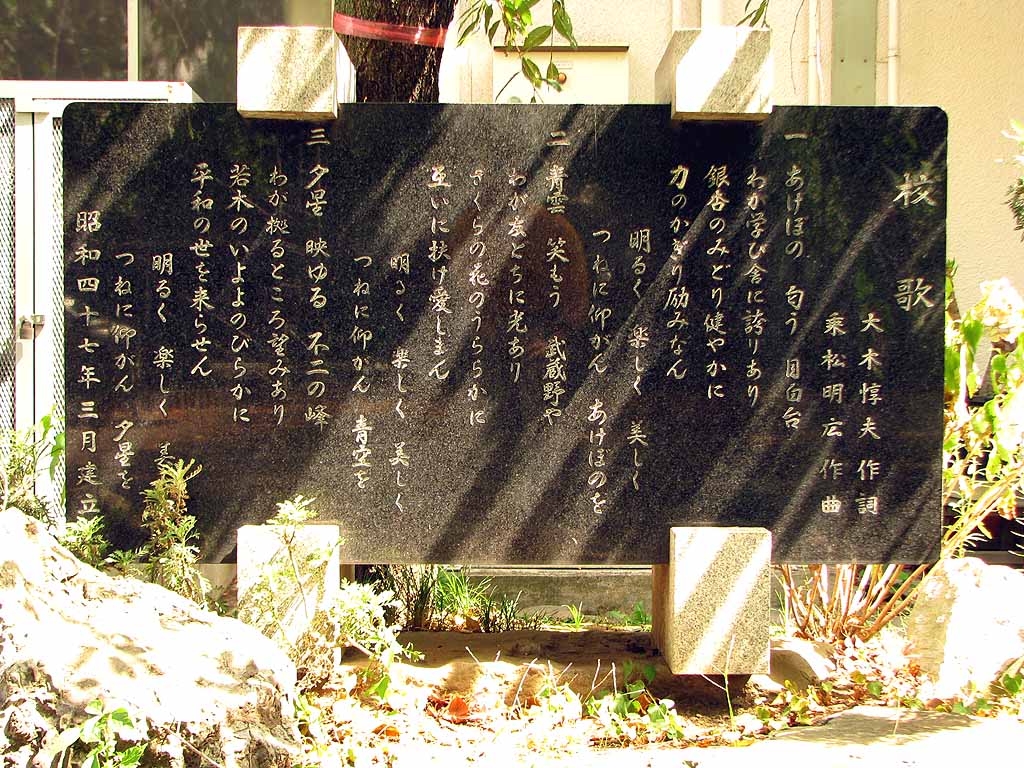 校歌
大木惇夫 作詞
乗松明広 作曲
一 あけぼの 匂う 目白台
わが学び舎に誇りあり
銀杏のみどり健やかに
力のかぎり励みなん
明るく 楽しく 美しく
つねに仰がん あけぼのを
二 青雲 笑もう 武蔵野や
わが友どちに光あり
さくらの花のうららかに
互いに扶け愛しまん
明るく 楽しく 美しく
つねに仰がん 青空を
三 夕星 映ゆる 不二の峰
わが拠るところ望みあり
若木のいよよのびらかに
平和の世を来らせん
明るく 楽しく 美
つねに仰がん 夕星を
昭和四十七年三月建立